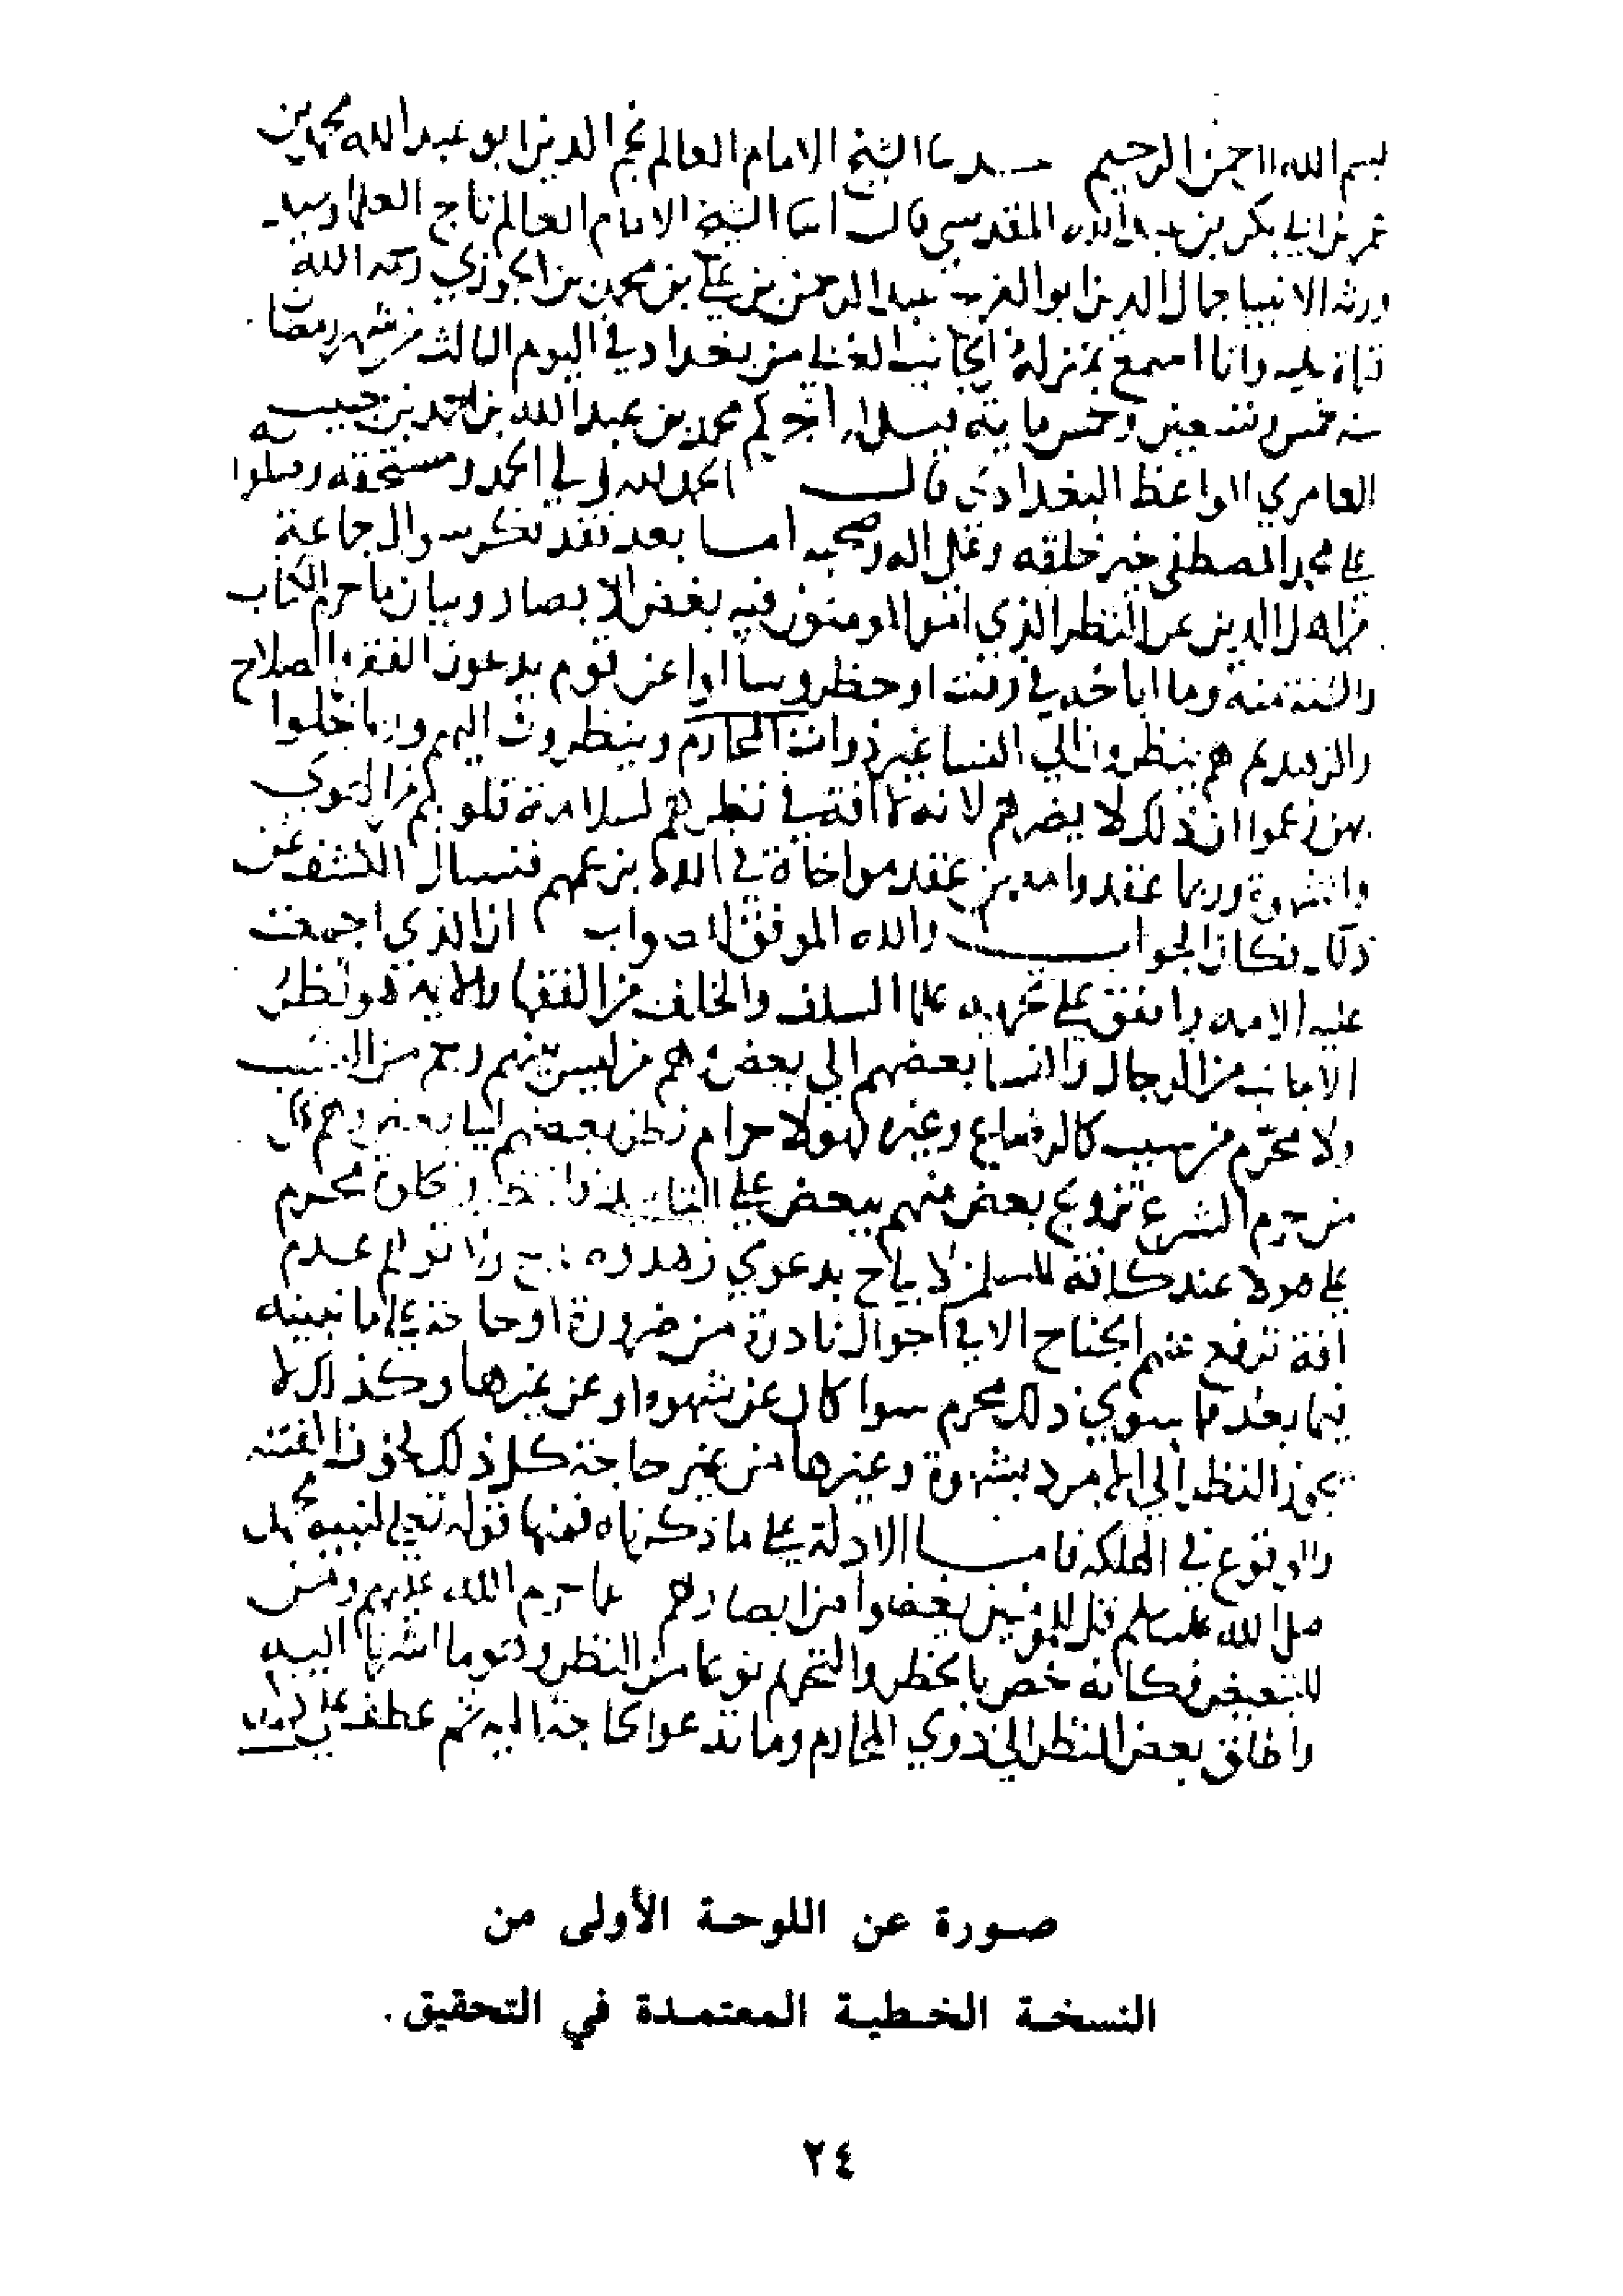 بسم الله الرحمن الرحيم حدثنا الشيخ الامام العالم نجم الدين ابو عبد الله محمد بن
عمر بن ابي بكر بن عبد الله المقدسي قال انبا الشيخ الامام العالم تاج العلما وسيد
ورثه الانبيا جمال الدين ابو الفرج عبد الرحمن بن علي بن محمد بن الجوزي رحمه الله
قراة عليه وانا اسمع بمنزله الجانب الغربي من بغداد في اليوم الثالث من شهر رمضان
سنه خمس وتسعين وخمس مايته اخبركم محمد بن عبد الله بن احمد بن حبيب
العامري الواعظ البغدادي قال الحمد لله ولي الحمد ومستحقه وصلواته
علي محمد المصطفى خير خلقه وعلى اله وصحبه اما بعد فقد تكرر سوال جماعة
من اهل الدين عن النظر الذي امر المومنون فيه بغض الابصار وبيان ما حرم الكتاب
والسنة منه وما اباحه في وقت او حظر وسالوا عن قوم يدعون الفقر والصلاح
والزهد ثم هم ينظرون الي النسا غير ذوات المحارم وينظرون اليهم وربما خلوا
بهن زعموا ان ذلك لا يضرهم لانه لا افة في نظرهم لسلامة قلوبهم من الهوي
والشهوة وربما عقدوا معهن عقد مواخاة في الله بزعمهم فنسال الكشف عن
ذلك فكان الجواب والله الموفق للصواب ان الذي اجمعت
عليه الامه واتفق علي تحريمه علما السلف والخلف من الفقها والايمة هو نظر
الاجانب من الرجال والنسا بعضهم الي بعض وهم من ليس بينهم رحم من النسب
ولا محرم من سبب كالرضاع وغيره فهولا حرام نظر بعضهم الي بعض وهم كل
من حرم الشرع تزويج بعض منهم ببعض على التابيد فالنظر محرم
علي هولا عند كافة المسلمين لا يباح بدعوي زهد ولا توهم عدم
افة ترفع عنهم الجناح الا في احوال نادرة من ضرورة او حاجة علي ما نبينه
فيما بعد فما سوي ذلك محرم سوا كان عن شهوة او عن غيرها وكذلك لا
يجوز النظر الي الامرد بشهوة وغيرها من غير حاجة كل ذلك لخوف الفتنه
والوقوع في الهلكه فاما الادلة علي ما ذكرناه فمنها قوله تعلي لنبيه محمد
صلى الله عليه وسلم قل للمومنين يغضوا من ابصارهم عما حرم الله عليهم ومن
للتبعيض فكانه خص بالحظر والتحريم نوعا من النظر وهو ما اشرنا اليه
واطلق بعض النظر الي ذوي المحارم وما تدعوا الحاجة اليه ثم عطف على
صورة عن اللوحة الأولى من
النسخة الخطية المعتمدة في التحقيق.
٢٤